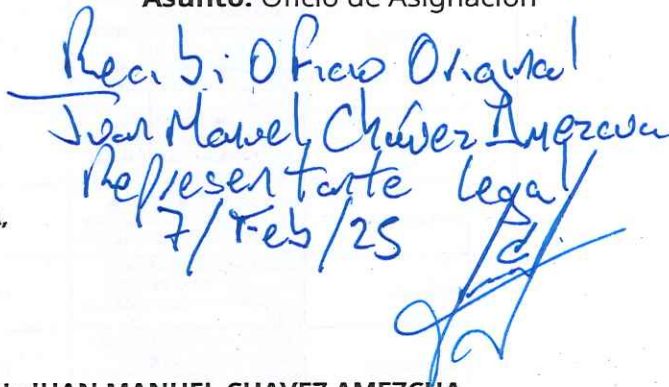 Asunto: Oficio de Asignación
Recibi Oficio Original
Juan Manuel Chávez Amezcua
Representante legal
7/Feb/25
JUAN MANUEL CHAVEZ AMEZCUA